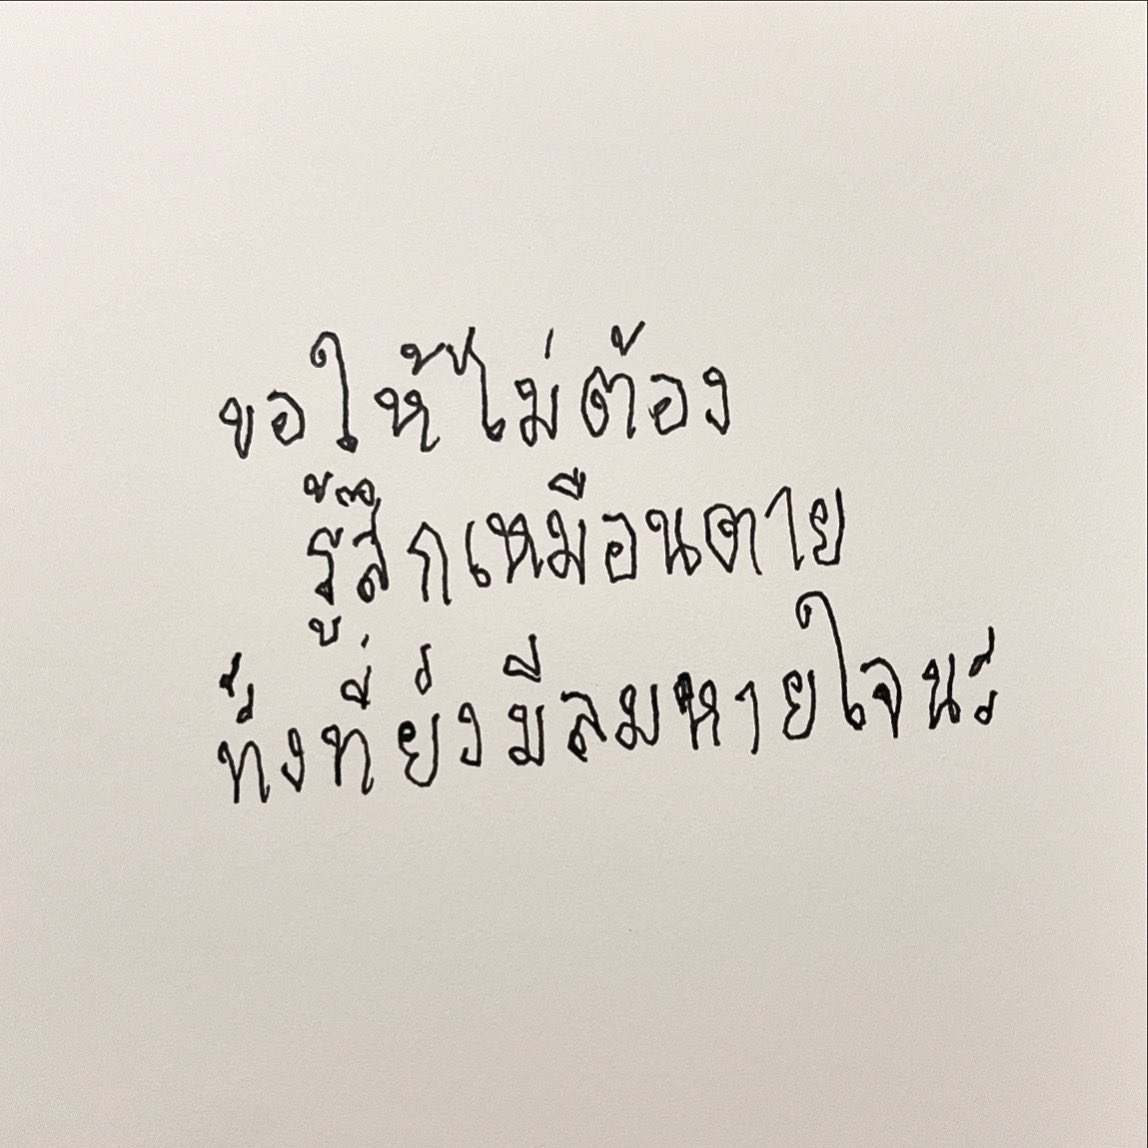 ขอให้ไม่ต้อง
รู้สึกเหมือนตาย
ทั้งที่ยังมีลมหายใจนะ